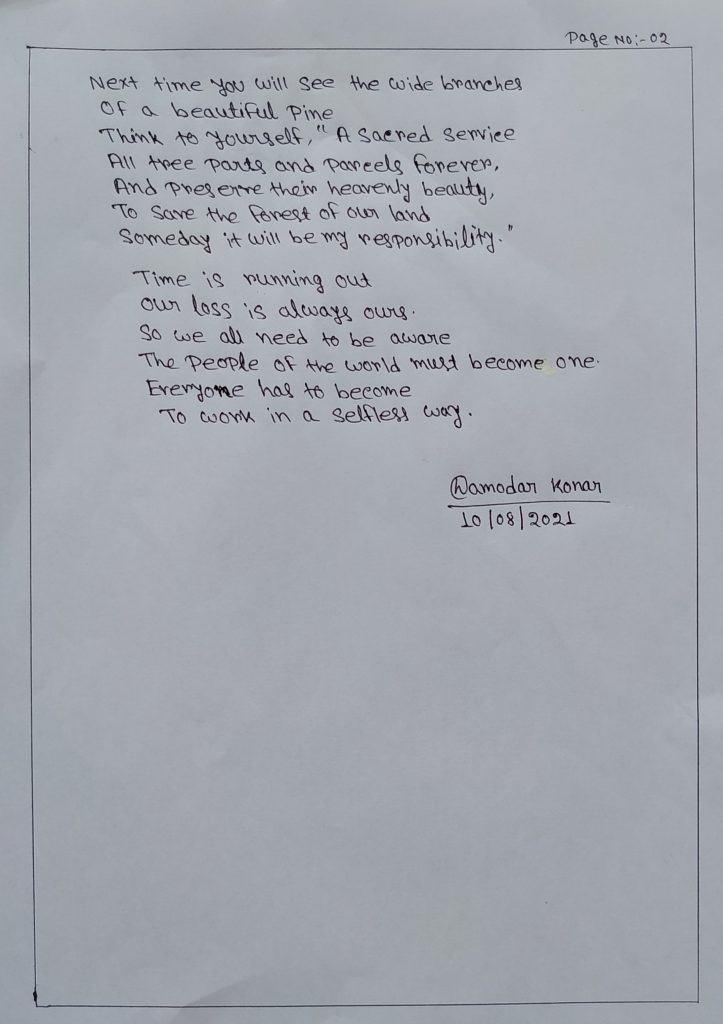 Page No:- 02
Next time you will see the wide branches
Of a beautiful Pine
Think to yourself, "A Sacred Service
All tree parts and parcels forever,
And preserve their heavenly beauty,
To Save the forest of our land
Someday it will be my responsibility."
Time is running out
Our loss is always ours.
So we all need to be aware
The People of the world must become one.
Everyone has to become
To work in a Selfless way.
Damodar Konar
10/08/2021